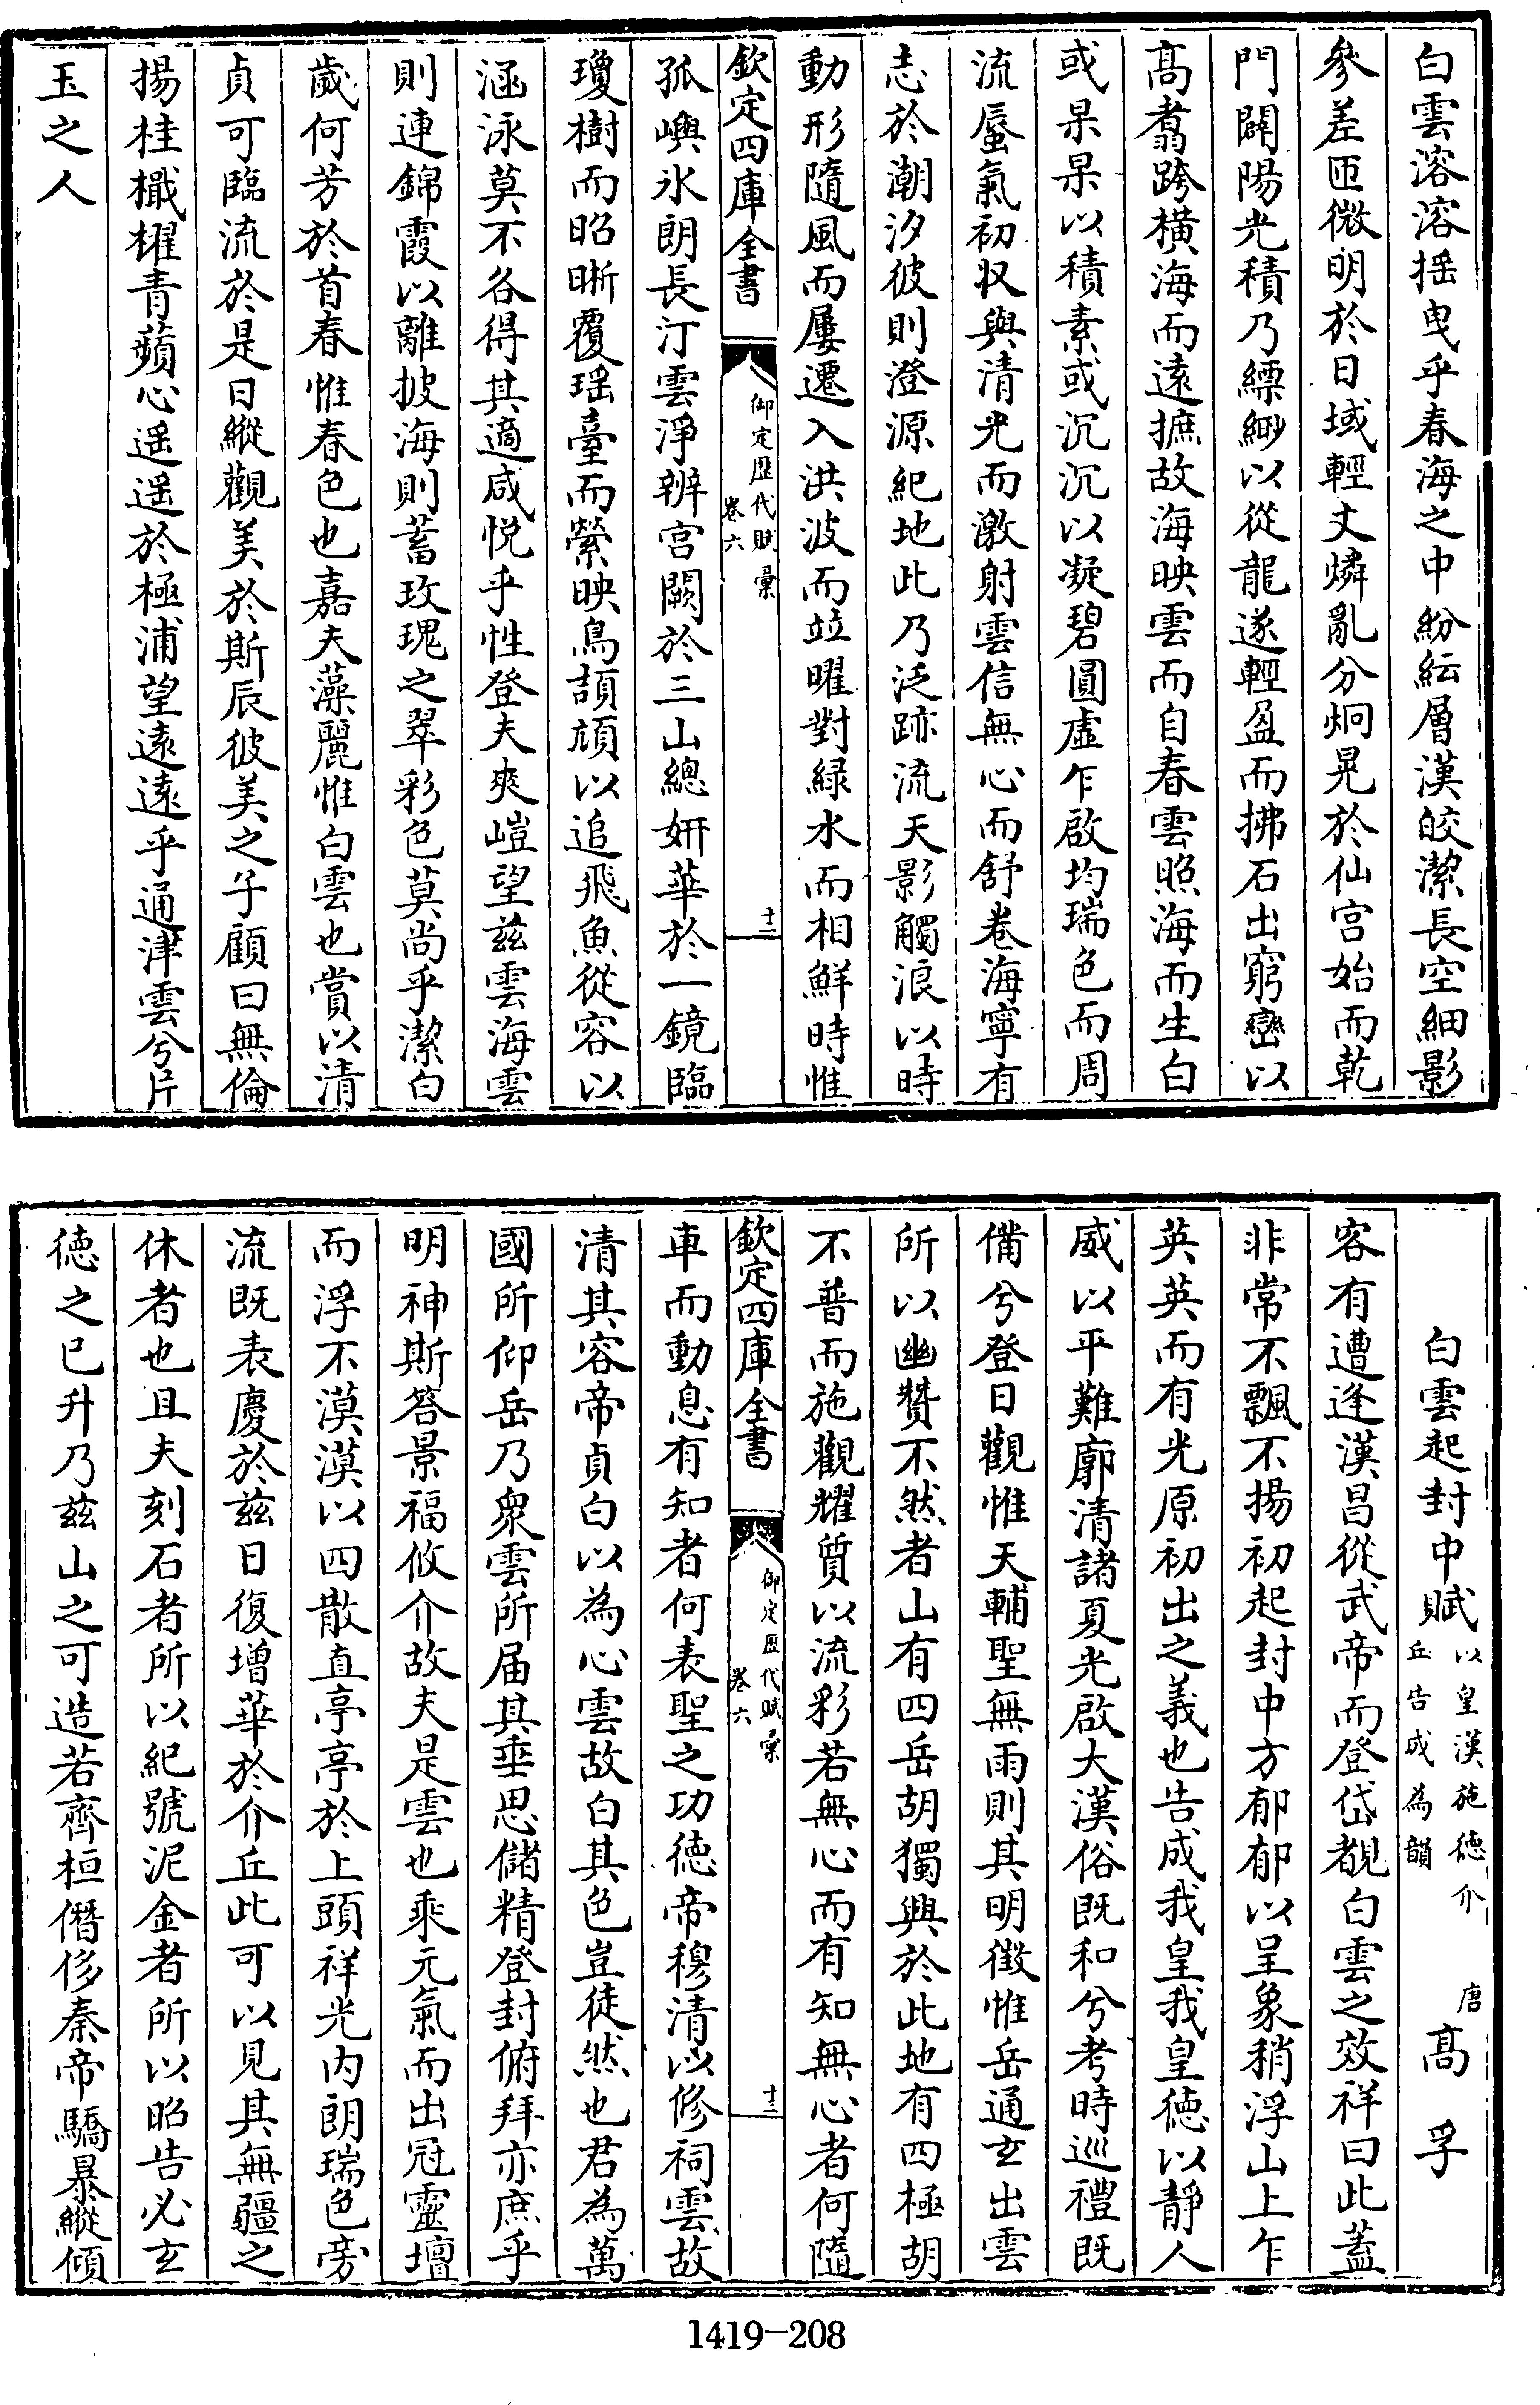 白雲溶溶揺曳乎春海之中紛紜層漢皎潔長空細影
參差匝微明於日域輕文燐亂分炯晃於仙宫始而乾
門闢陽光積乃縹緲以從龍遂輕盈而拂石出窮巒以
髙翥跨横海而逺摭故海映雲而自春雲照海而生白
或杲杲以積素或沉沉以凝碧圓虚乍啟均瑞色而周
流蜃氣初収與清光而激射雲信無心而舒卷海寧有
志於潮汐彼則澄源紀地此乃泛跡流天影觸浪以時
動形隨風而屢遷入洪波而竝曜對緑水而相鮮時惟
欽定四庫全書
御定歴代賦彙
卷六
十二
孤嶼氷朗長汀雲淨辨宫闕於三山總妍華於一鏡臨
瓊樹而昭晰覆瑶臺而縈映鳥頡頏以追飛魚從容以
涵泳莫不各得其適咸悦乎性登夫爽塏望兹雲海雲
則連錦霞以離披海則蓄玫瑰之翠彩色莫尚乎潔白
嵗何芳於首春惟春色也嘉夫藻麗惟白雲也賞以清
貞可臨流於是日縱觀美於斯辰彼美之子顧曰無倫
揚桂檝櫂青蘋心遥遥於極浦望逺逺乎通津雲兮片
玉之人
白雲起封中賦
以皇漢施徳介
丘告成為韻
唐
髙孚
客有遭逢漢昌從武帝而登岱覩白雲之效祥曰此蓋
非常不飄不揚初起封中方郁郁以呈象稍浮山上乍
英英而有光原初出之義也告成我皇我皇徳以靜人
威以平難廓清諸夏光啟大漢俗既和兮考時巡禮既
備兮登日觀惟天輔聖無雨則其明徴惟岳通玄出雲
所以幽贊不然者山有四岳胡獨興於此地有四極胡
不普而施觀耀質以流彩若無心而有知無心者何隨
欽定四庫全書
御定歴代賦彙
卷六
十三
車而動息有知者何表聖之功徳帝穆清以修祠雲故
清其容帝貞白以為心雲故白其色豈徒然也君為萬
國所仰岳乃衆雲所届其垂思儲精登封俯拜亦庶乎
明神斯答景福攸介故夫是雲也乘元氣而出冠靈壇
而浮不漠漠以四散直亭亭於上頭祥光内朗瑞色旁
流既表慶於兹日復增華於介丘此可以見其無疆之
休者也且夫刻石者所以紀號泥金者所以昭告必玄
徳之已升乃兹山之可造若齊桓僭侈秦帝驕暴縱傾
1419-208